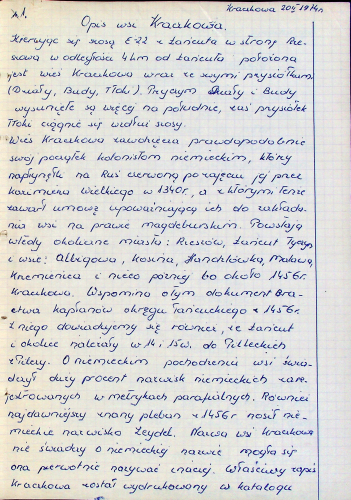 Kraczkowa 20 II 1974r.
№1.
Opis wsi Kraczkowa.
Kierując się szosą E-22 z Łańcuta w stronę Rze-
szowa w odległości 4 km od Łańcuta położona
jest wieś Kraczkowa wraz ze swymi przysiółkami
(Działy, Budy, Tłoki). Przyczym Działy i Budy
wysunięte są więcej na południe, zaś przysiółek
Tłoki ciągnie się wzdłuż szosy.
Wieś Kraczkowa zawdzięcza prawdopodobnie
swój początek kolonistom niemieckim, którzy
napłynęli na Ruś czerwoną po zajęciu jej przez
Kazimierza Wielkiego w 1340r, a z którymi tenże
zawarł umowę upoważniającą ich do zakłada-
nia wsi na prawie magdeburskim. Powstają
wtedy okoliczne miasta: Rzeszów, Łańcut, Tyczyn
i wsie: Albigowa, Kosina, Handzlówka, Markowa,
Krzemienica i nieco później bo około 1456r.
Kraczkowa. Wspomina o tym dokument Bra-
ctwa kapłanów okręgu Łańcuckiego z 1456r.
Z niego dowiadujemy się również, że Łańcut
i okolice należały w 14 i 15 w. do Pileckich
z Pilczy. O niemieckim pochodzeniu wsi świa-
dczył duży procent nazwisk niemieckich zare-
jestrowanych w metrykach parafialnych. Również
najdawniejszy znany pleban z 1456r nosił nie-
mieckie nazwisko Zeydel. Nazwa wsi Kraczkowa
nie świadczy o niemieckiej nazwie mogła się
ona pierwotnie nazywać inaczej. Właściwy zapis
Kraczkowa został wydrukowany w katalogu